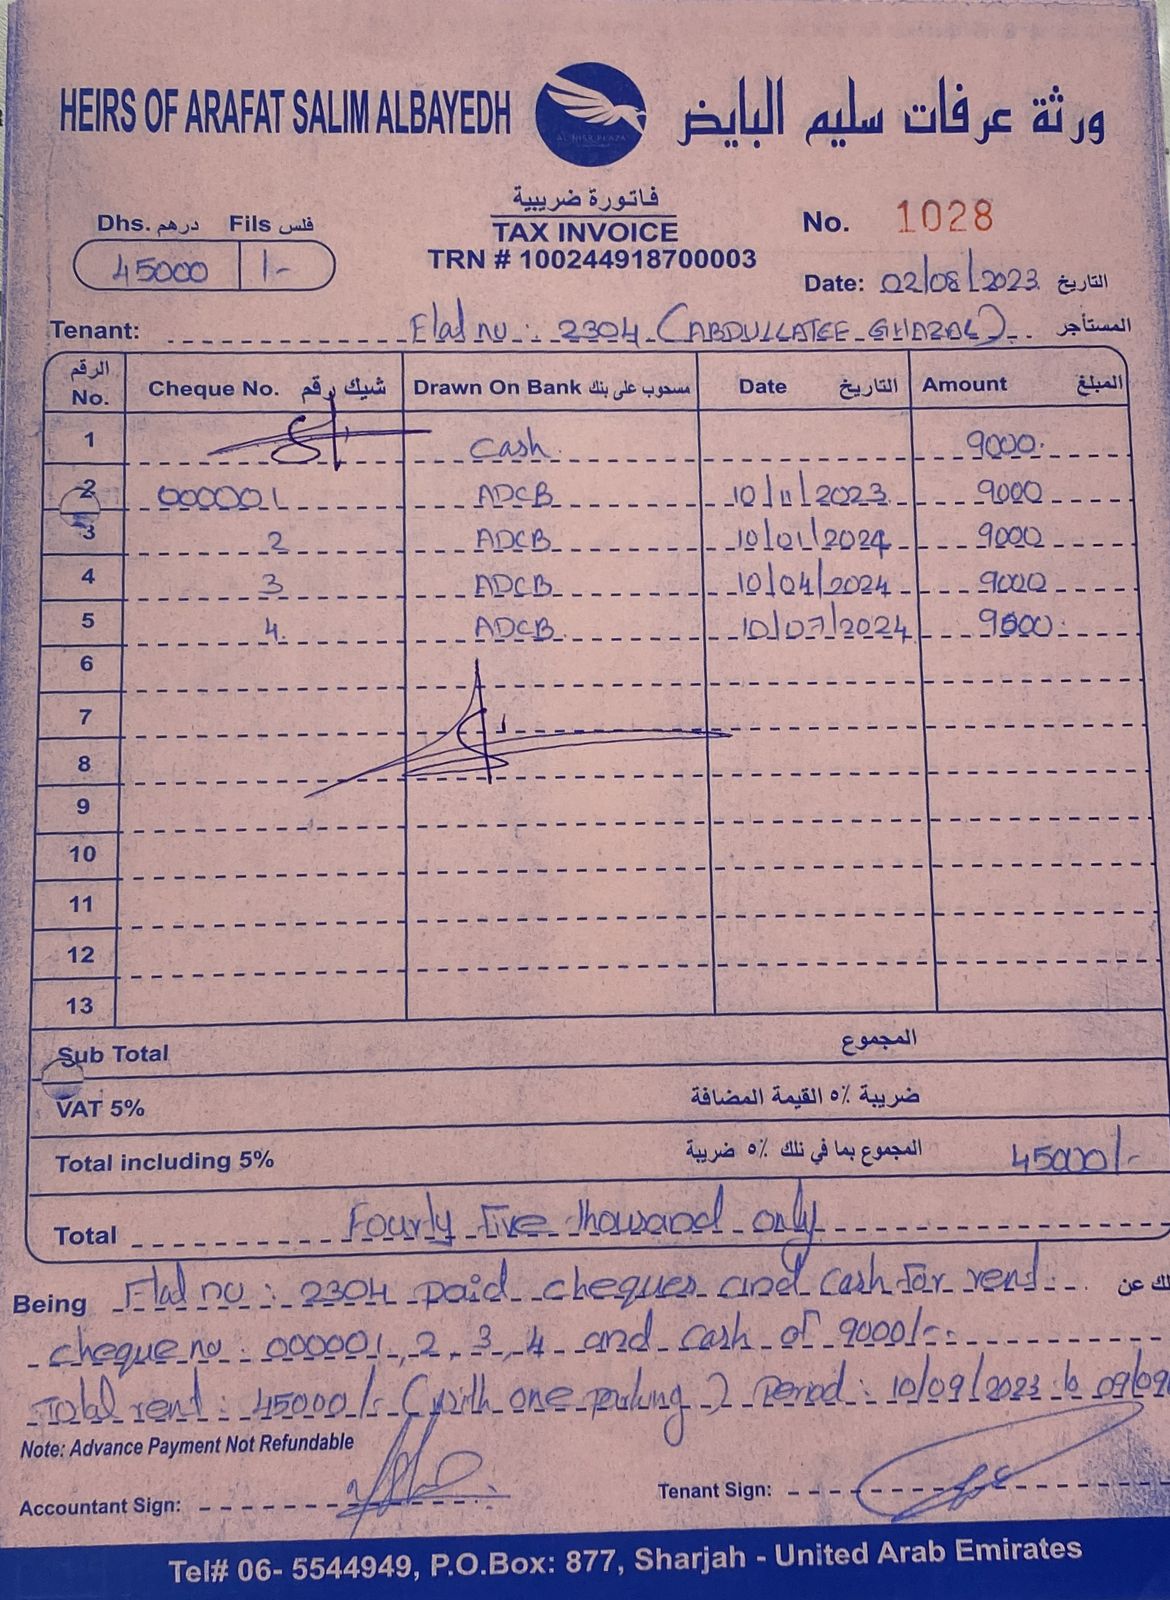 HEIRS OF ARAFAT SALIM ALBAYEDH
AL NISR PLAZA
ورثة عرفات سليم البايض
Dhs. درهم Fils فلس
45000 /-
فاتورة ضريبية
TAX INVOICE
TRN # 100244918700003
No. 1028
Date: 02/08/2023 التاريخ
Tenant: Flat no : 2304 (ABDULLATEE GHAZAL) المستأجر
الرقم No. Cheque No. شيك رقم Drawn On Bank مسحوب على بنك Date التاريخ Amount المبلغ
1 Cash 9000
2 000001 ADCB 10/11/2023 9000
3 2 ADCB 10/01/2024 9000
4 3 ADCB 10/04/2024 9000
5 4 ADCB 10/07/2024 9000
6
7
8
9
10
11
12
13
Sub Total المجموع
VAT 5% ضريبة ٥٪ القيمة المضافة
Total including 5% المجموع بما في ذلك ٥٪ ضريبة 45000/-
Total Fourty Five thousand only
Being Flat no : 2304 paid cheques and cash for rent
cheque no 000001, 2, 3, 4 and cash of 9000/-
Total rent : 45000/- (with one parking) Period : 10/09/2023 to 09/09
Note: Advance Payment Not Refundable
Accountant Sign: Tenant Sign:
Tel# 06- 5544949, P.O.Box: 877, Sharjah - United Arab Emirates